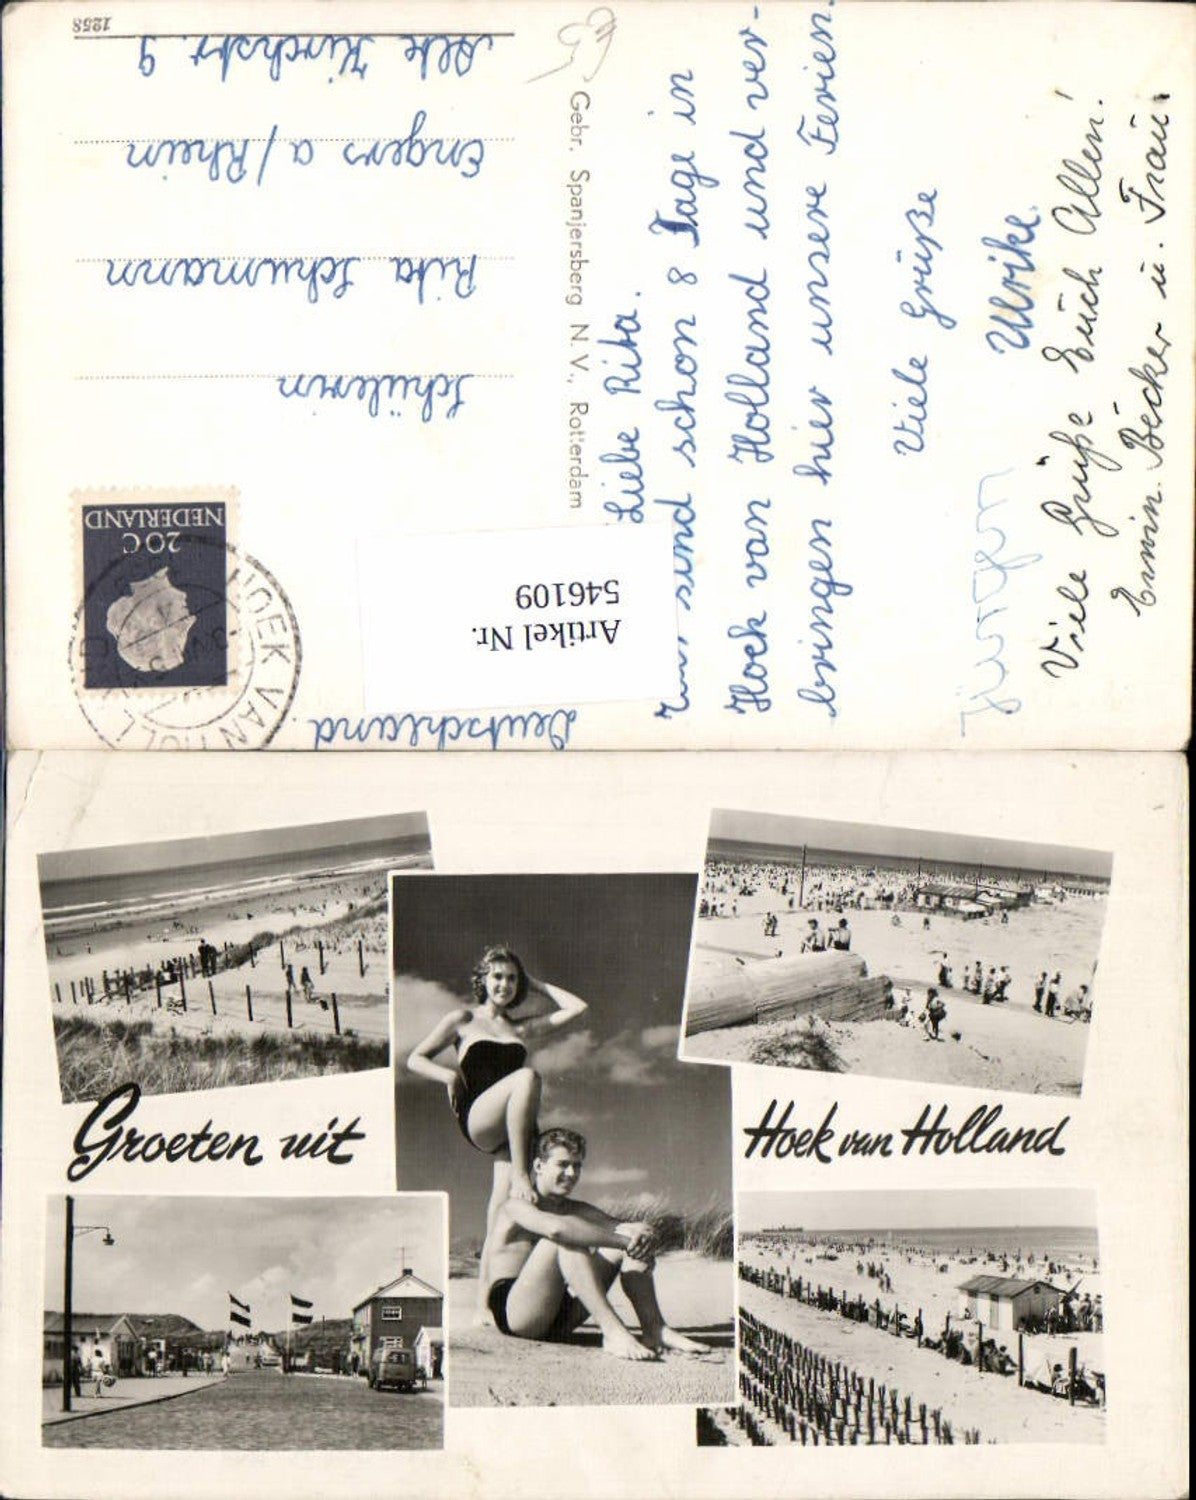 Liebe Rita.
sind schon 8 Tage in
Hoek van Holland und ver-
bringen hier unsere Ferien.
Viele Grüße
Ulrike.
Jürgen
Viele Grüße Euch Allen!
Erwin Becker u. Frau.
Gebr. Spanjersberg N.V., Rotterdam
NEDERLAND
20C
HOEK VAN HOLL
Schülerin
Rita Schumann
Engers a/Rhein
Alte Kirchstr. 9
Deutschland
1258
Artikel Nr.
546109
Groeten uit Hoek van Holland